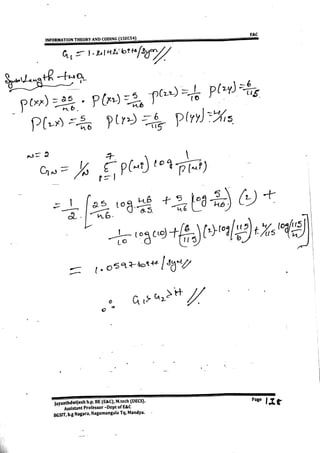 E&C
INFORMATION THEORY AND CODING (15EC54)
G₁ = 1.2142 bits/sym //
Symbol Length two
P(xx) = 25/46 . P(xz) = 5/46 P(zz) = 1/10 P(zy) = 6/115
P(zx) = 5/46 P(yz) = 6/115 P(yy) = 4/115
N = 2
GN = 1/N Σ P(mt) log 1/P(mt)
= 1/2 [ 25/46 log 46/25 + 5/46 log (5/46) (2) +
1/10 log (10) + (6/115) (2) log (115/6) + 4/115 log (115/4) ]
= 1.0597 bits/sym //
∴ G₁ > G₂ > H //
Jayanthdwijesh h.p. BE (E&C), M.tech (DECS).
Assistant Professor -Dept of E&C
BGSIT, b.g Nagara, Nagamangala Tq, Mandya.
Page